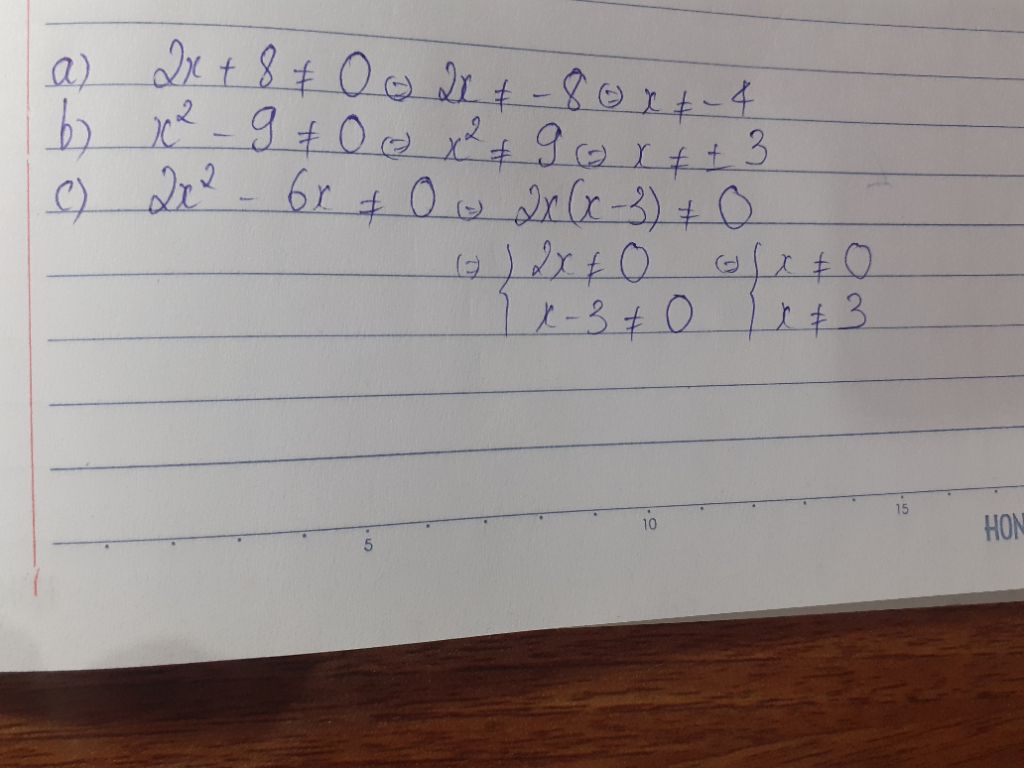 a) 2x + 8 ≠ 0 ⇔ 2x ≠ -8 ⇔ x ≠ -4
b) x² - 9 ≠ 0 ⇔ x² ≠ 9 ⇔ x ≠ ± 3
c) 2x² - 6x ≠ 0 ⇔ 2x(x-3) ≠ 0
⇔ { 2x ≠ 0 ⇔ { x ≠ 0
x - 3 ≠ 0 x ≠ 3
5 10 15
HON